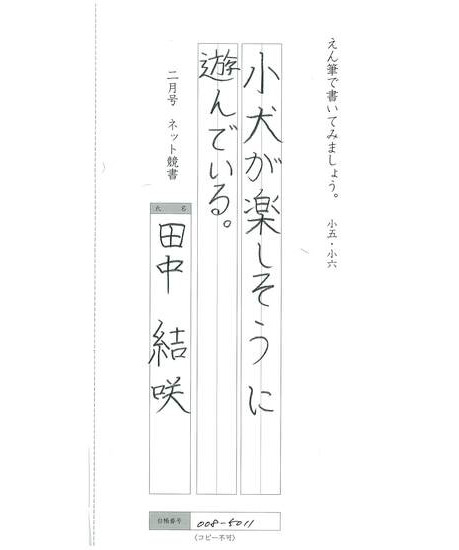 えん筆で書いてみましょう。 小五・小六
小犬が楽しそうに
遊んでいる。
二月号 ネット競書
氏 名
田中 結咲
台帳番号 008-5011
(コピー不可)